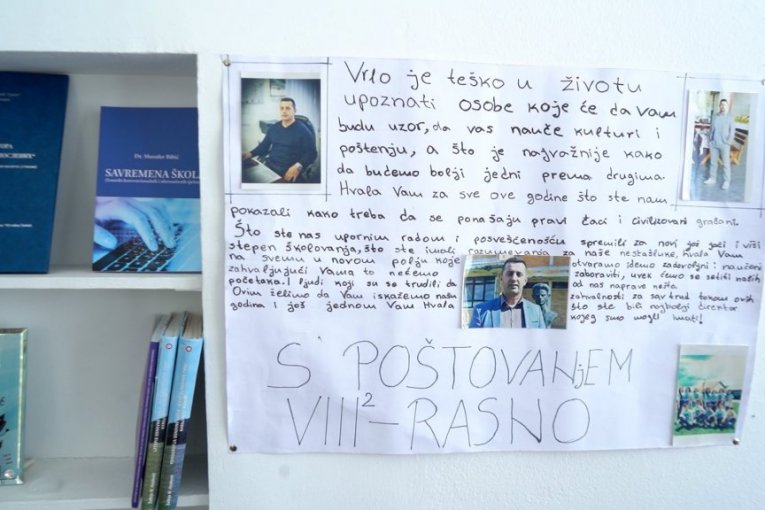 Vrlo je teško u životu
upoznati osobe koje će da vam
budu uzor, da vas nauče kulturi i
poštenju, a što je najvažnije kako
da budemo bolji jedni prema drugima.
Hvala Vam za sve ove godine što ste nam
pokazali kako treba da se ponašaju pravi đaci i civilizovani građani.
Što ste nas upornim radom i posvećenošću spremili za novi još jači i viši
stepen školovanja, što ste imali razumevanja za naše nestašluke, hvala Vam
na svemu u novom polju koje otvaramo idemo zadovoljni i naučeni
zahvaljujući Vama to nećemo zaboraviti, uvek ćemo se setiti naših
početaka. I ljudi koji su se trudili da od nas naprave nešto.
Ovim želimo da Vam iskažemo našu zahvalnosti za sav trud tokom ovih
godina i još jednom Vam Hvala što ste bili najbolji direktor
kojeg smo mogli imati!
S' POŠTOVANjEM
VIII² - RASNO
Dr. Munnfer Bibić
SAVREMENA ŠKOLA